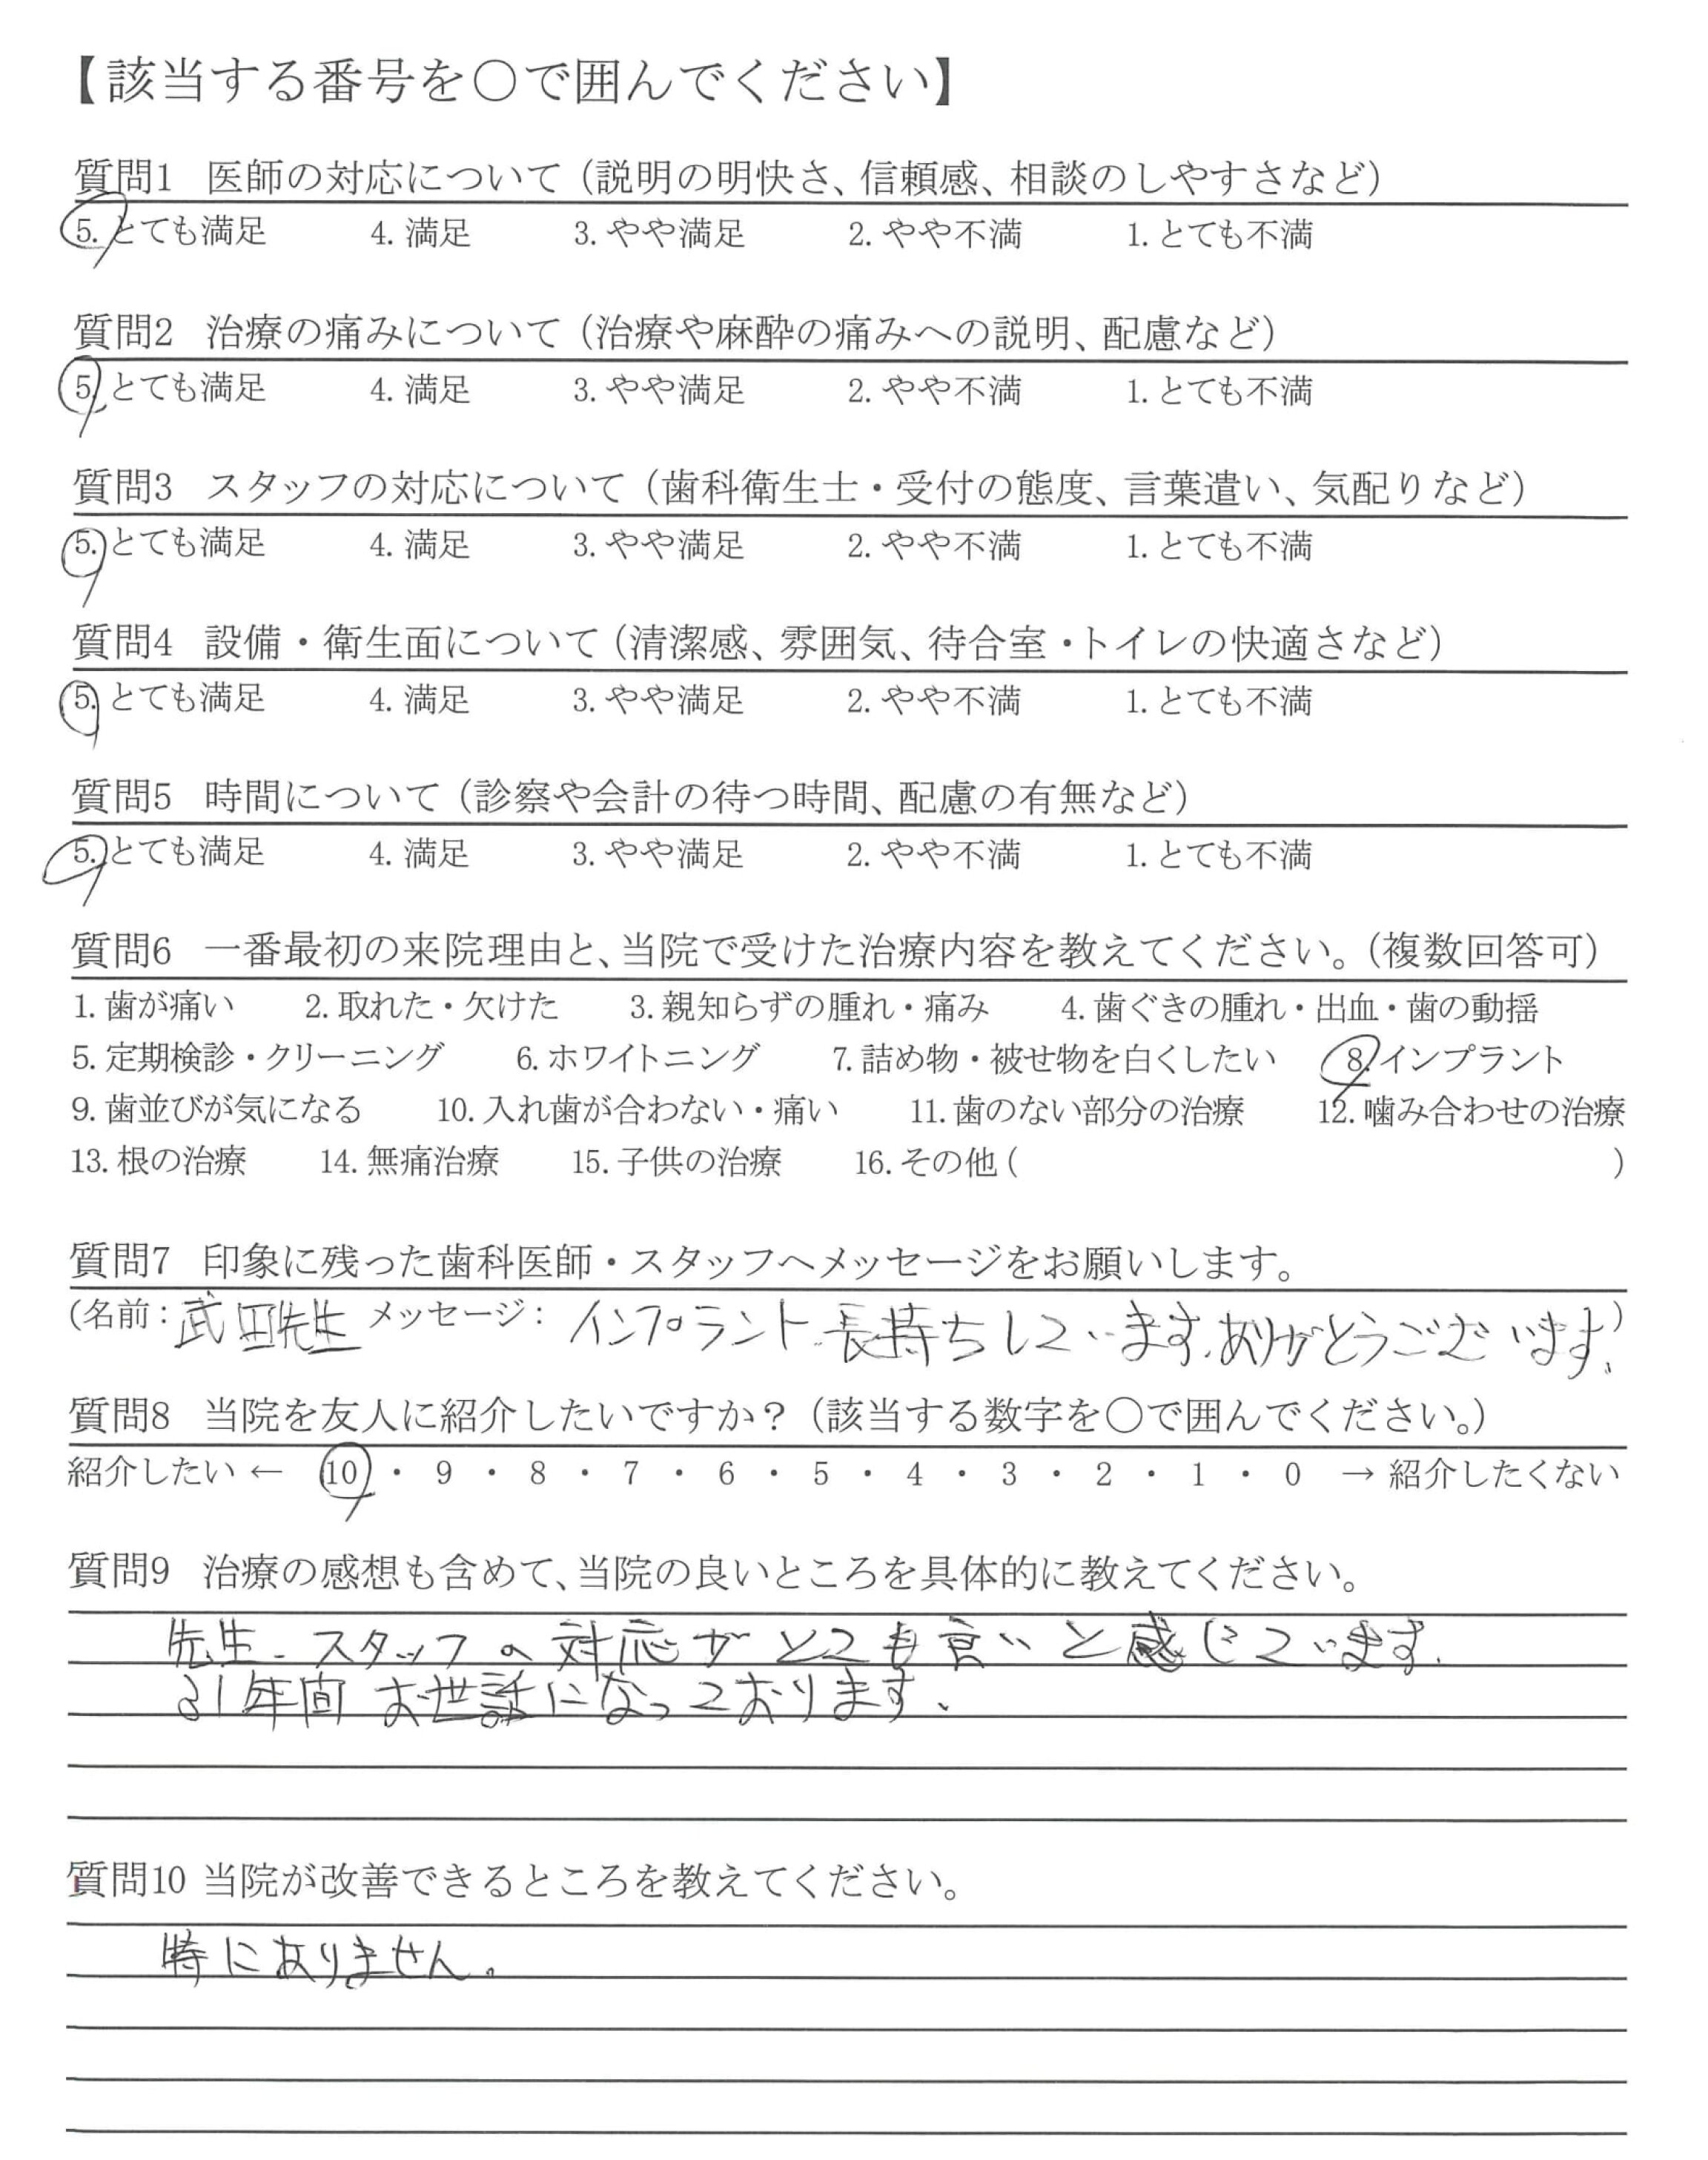 【該当する番号を○で囲んでください】
質問1 医師の対応について（説明の明快さ、信頼感、相談のしやすさなど）
5. とても満足 4. 満足 3. やや満足 2. やや不満 1. とても不満
質問2 治療の痛みについて（治療や麻酔の痛みへの説明、配慮など）
5. とても満足 4. 満足 3. やや満足 2. やや不満 1. とても不満
質問3 スタッフの対応について（歯科衛生士・受付の態度、言葉遣い、気配りなど）
5. とても満足 4. 満足 3. やや満足 2. やや不満 1. とても不満
質問4 設備・衛生面について（清潔感、雰囲気、待合室・トイレの快適さなど）
5. とても満足 4. 満足 3. やや満足 2. やや不満 1. とても不満
質問5 時間について（診察や会計の待つ時間、配慮の有無など）
5. とても満足 4. 満足 3. やや満足 2. やや不満 1. とても不満
質問6 一番最初の来院理由と、当院で受けた治療内容を教えてください。（複数回答可）
1. 歯が痛い 2. 取れた・欠けた 3. 親知らずの腫れ・痛み 4. 歯ぐきの腫れ・出血・歯の動揺
5. 定期検診・クリーニング 6. ホワイトニング 7. 詰め物・被せ物を白くしたい 8. インプラント
9. 歯並びが気になる 10. 入れ歯が合わない・痛い 11. 歯のない部分の治療 12. 噛み合わせの治療
13. 根の治療 14. 無痛治療 15. 子供の治療 16. その他（ ）
質問7 印象に残った歯科医師・スタッフへメッセージをお願いします。
（名前：武田先生 メッセージ：インプラント長持ちしています。ありがとうございます。）
質問8 当院を友人に紹介したいですか？（該当する数字を○で囲んでください。）
紹介したい ← 10 ・ 9 ・ 8 ・ 7 ・ 6 ・ 5 ・ 4 ・ 3 ・ 2 ・ 1 ・ 0 → 紹介したくない
質問9 治療の感想も含めて、当院の良いところを具体的に教えてください。
先生、スタッフの対応がとても良いと感じています。
年間お世話になっております。
質問10 当院が改善できるところを教えてください。
特にありません。